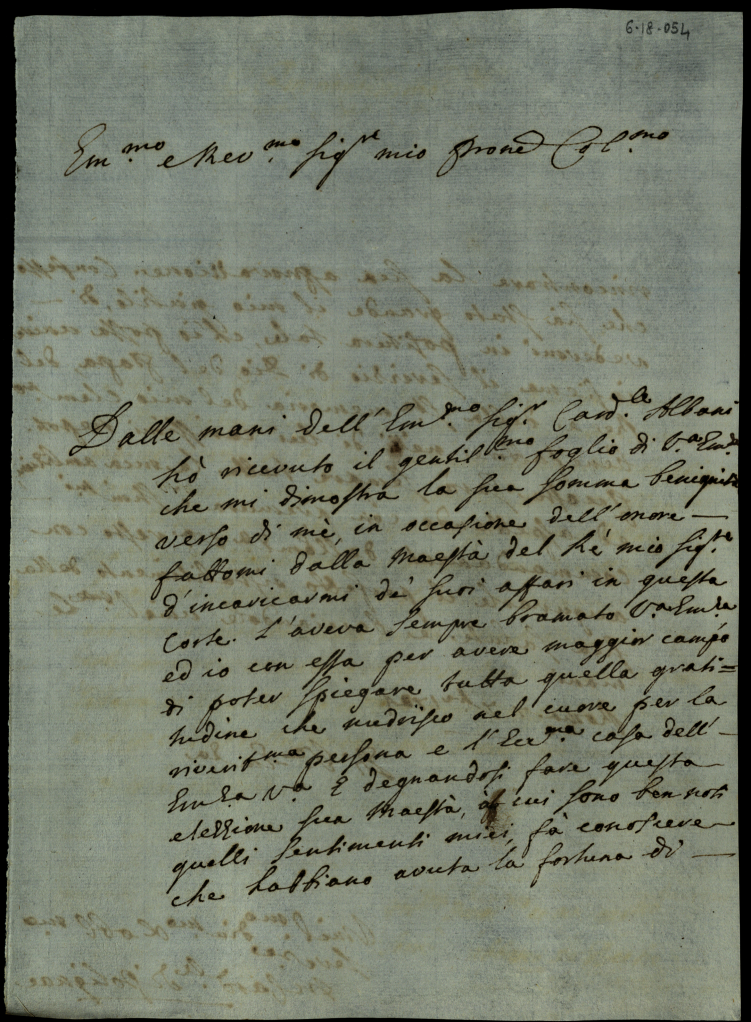 6-18-054
Em.mo e Rev.mo Sig.re mio Prone Col.mo
Dalle mani dell'Em.mo Sig.r Card.le Albani
hò ricevuto il gentil.mo foglio di V.a Em.za
che mi dimostra la sua somma benignità
verso di mè, in occasione dell'onore
fattomi dalla Maestà del Ré mio Sig.re
d'incaricarmi de' suoi affari in questa
Corte. L'aveva sempre bramato V.a Em.za
ed io con essa per avere maggior campo
di poter spiegare tutta quella grati=
tudine che nudrisco nel cuore per la
riverit.ma persona e l'Ecc.ma casa dell'
Em.za V.a E degnandosi fare questa
elezzione sua Maestà, à cui sono ben noti
quelli sentimenti miei, fà conoscere
che habbiano avuta la fortuna di